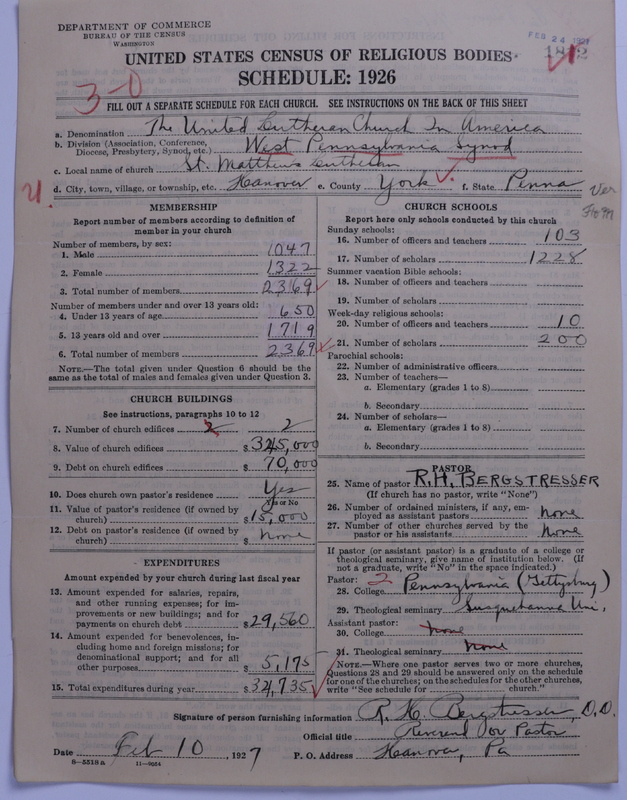 DEPARTMENT OF COMMERCE
BUREAU OF THE CENSUS
WASHINGTON
FEB 24 1927
UNITED STATES CENSUS OF RELIGIOUS BODIES
SCHEDULE: 1926
3-0
FILL OUT A SEPARATE SCHEDULE FOR EACH CHURCH. SEE INSTRUCTIONS ON THE BACK OF THIS SHEET
a. Denomination The United Lutheran Church In America
b. Division (Association, Conference, Diocese, Presbytery, Synod, etc.) West Pennsylvania Synod
c. Local name of church St. Matthews Lutheran
d. City, town, village, or township, etc. Hanover e. County York f. State Penna
U.
MEMBERSHIP
Report number of members according to definition of member in your church
Number of members, by sex:
1. Male 1047
2. Female 1322
3. Total number of members 2369
Number of members under and over 13 years old:
4. Under 13 years of age 650
5. 13 years old and over 1719
6. Total number of members 2369
NOTE.—The total given under Question 6 should be the same as the total of males and females given under Question 3.
CHURCH BUILDINGS
See instructions, paragraphs 10 to 12
7. Number of church edifices 2 2
8. Value of church edifices $ 345,000
9. Debt on church edifices $ 70,000
10. Does church own pastor's residence Yes
Yes or No
11. Value of pastor's residence (if owned by church) $ 15,000
12. Debt on pastor's residence (if owned by church) $ none
EXPENDITURES
Amount expended by your church during last fiscal year
13. Amount expended for salaries, repairs, and other running expenses; for improvements or new buildings; and for payments on church debt $ 29,560
14. Amount expended for benevolences, including home and foreign missions; for denominational support; and for all other purposes $ 5,175
15. Total expenditures during year $ 34,735
CHURCH SCHOOLS
Report here only schools conducted by this church
Sunday schools:
16. Number of officers and teachers 103
17. Number of scholars 1228
Summer vacation Bible schools:
18. Number of officers and teachers
19. Number of scholars
Week-day religious schools:
20. Number of officers and teachers 10
21. Number of scholars 200
Parochial schools:
22. Number of administrative officers
23. Number of teachers—
a. Elementary (grades 1 to 8)
b. Secondary
24. Number of scholars—
a. Elementary (grades 1 to 8)
b. Secondary
PASTOR
25. Name of pastor R. H. BERGSTRESSER
(If church has no pastor, write "None")
26. Number of ordained ministers, if any, employed as assistant pastors none
27. Number of other churches served by the pastor or his assistants none
If pastor (or assistant pastor) is a graduate of a college or theological seminary, give name of institution below. (If not a graduate, write "No" in the space indicated.)
Pastor: 2
28. College Pennsylvania (Gettysburg)
29. Theological seminary Susquehanna Uni.
Assistant pastor:
30. College none
31. Theological seminary none
NOTE.—Where one pastor serves two or more churches, Questions 28 and 29 should be answered only on the schedule for one of the churches; on the schedules for the other churches, write "See schedule for church."
Signature of person furnishing information R. H. Bergstresser, D.D.
Official title Reverend or Pastor
Date Feb 10, 1927 P. O. Address Hanover, Pa
8-5518 a 11-9054